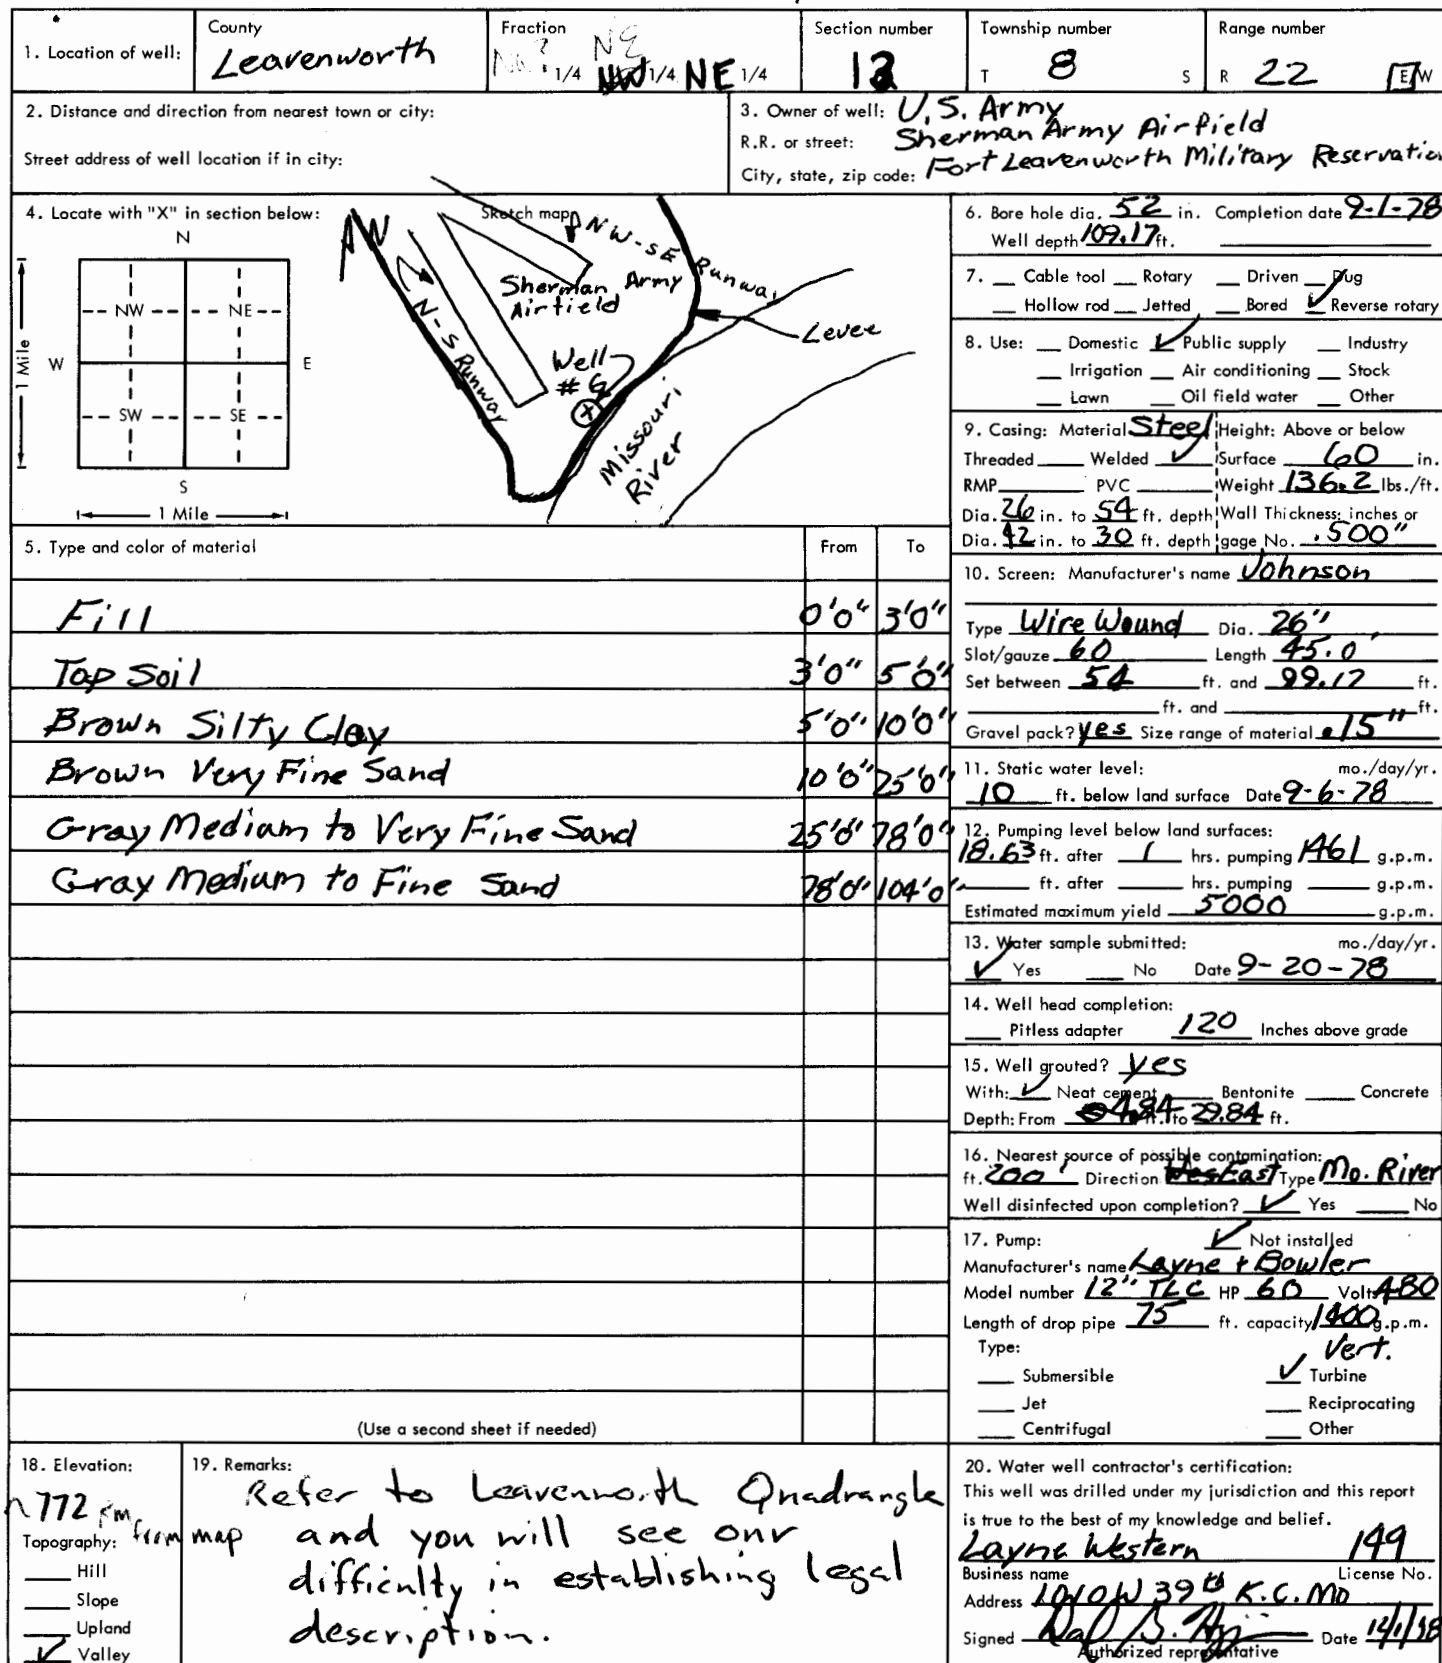 1. Location of well:
County
Leavenworth
Fraction
NE
1/4 NW 1/4 NE 1/4
Section number
Township number
T 8 S
Range number
R 22 E/W
2. Distance and direction from nearest town or city:
Street address of well location if in city:
3. Owner of well: U.S. Army
R.R. or street: Sherman Army Airfield
City, state, zip code: Fort Leavenworth Military Reservation
4. Locate with "X" in section below:
N
NW NE
W E
SW SE
S
1 Mile
1 Mile
Sketch map
N
NW-SE Runway
N-S Runway
Sherman Army
Airfield
Levee
Well
Missouri
River
5. Type and color of material From To
Fill 0'0" 3'0"
Top Soil 3'0" 5'0"
Brown Silty Clay 5'0" 10'0"
Brown Very Fine Sand 10'0" 25'0"
Gray Medium to Very Fine Sand 25'0" 78'0"
Gray Medium to Fine Sand 78'0" 104'0"
(Use a second sheet if needed)
6. Bore hole dia. 52 in. Completion date 9-1-78
Well depth 109.17 ft.
7. Cable tool Rotary Driven Dug
Hollow rod Jetted Bored Reverse rotary
8. Use: Domestic Public supply Industry
Irrigation Air conditioning Stock
Lawn Oil field water Other
9. Casing: Material Steel Height: Above or below
Threaded Welded Surface 60 in.
RMP PVC Weight 136.2 lbs./ft.
Dia. 26 in. to 54 ft. depth Wall Thickness: inches or
Dia. 42 in. to 30 ft. depth gage No. .500"
10. Screen: Manufacturer's name Johnson
Type Wire Wound Dia. 26"
Slot/gauze 60 Length 45.0'
Set between 54 ft. and 99.17 ft.
ft. and ft.
Gravel pack? yes Size range of material .15"
11. Static water level: mo./day/yr.
10 ft. below land surface Date 9-6-78
12. Pumping level below land surfaces:
18.63 ft. after 1 hrs. pumping 1461 g.p.m.
ft. after hrs. pumping g.p.m.
Estimated maximum yield 5000 g.p.m.
13. Water sample submitted: mo./day/yr.
Yes No Date 9-20-78
14. Well head completion:
Pitless adapter 120 Inches above grade
15. Well grouted? yes
With: Neat cement Bentonite Concrete
Depth: From 4.84 ft. to 29.84 ft.
16. Nearest source of possible contamination:
ft. 200' Direction East Type Mo. River
Well disinfected upon completion? Yes No
17. Pump: Not installed
Manufacturer's name Layne + Bowler
Model number 12" TLC HP 60 Volts 480
Length of drop pipe 75 ft. capacity 1400 g.p.m.
Type: Vert.
Submersible Turbine
Jet Reciprocating
Centrifugal Other
18. Elevation:
772
from map
Topography:
Hill
Slope
Upland
Valley
19. Remarks:
Refer to Leavenworth Quadrangle
and you will see our
difficulty in establishing legal
description.
20. Water well contractor's certification:
This well was drilled under my jurisdiction and this report
is true to the best of my knowledge and belief.
Layne Western 149
Business name License No.
Address 1010 W 39th K.C. Mo
Signed Date
Authorized representative